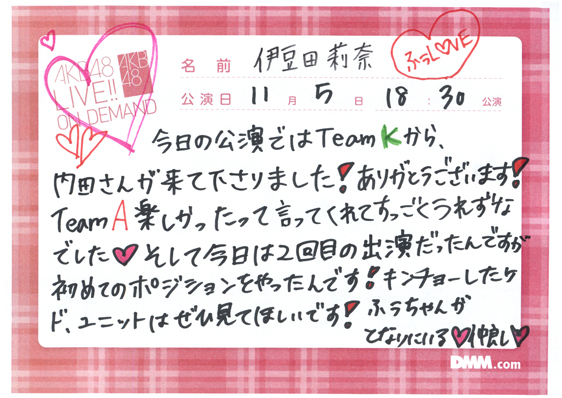 AKB48
LIVE!!
ON DEMAND
AKB
48
名前 伊豆田莉奈
ふぅLOVE
公演日 11月5日 18:30公演
今日の公演ではTeam Kから、
内田さんが来て下さりました!ありがとうございます!
Team A 楽しかったって言ってくれてすっごくうれずな
でした♥そして今日は2回目の出演だったんですが
初めてのポジションをやったんです!キンチョーしたケ
ド、ユニットはぜひ見てほしいです!ふぅちゃんが
となりにいる♥仲良し♥
DMM.com